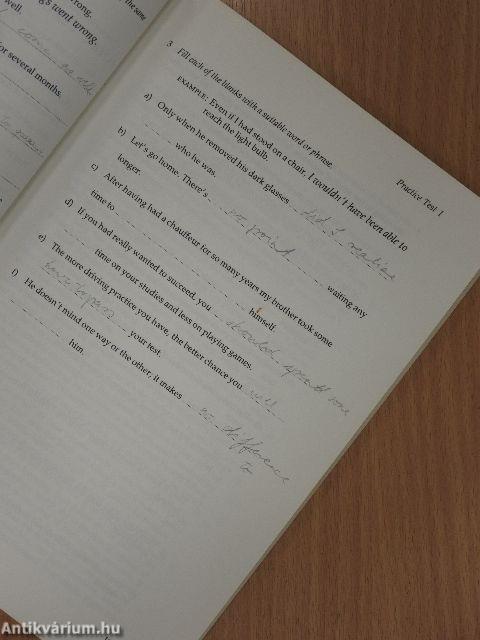 gs went wrong.
well.
for several months.
Practice Test 1
3 Fill each of the blanks with a suitable word or phrase.
EXAMPLE: Even if I had stood on a chair, I wouldn't have been able to
reach the light bulb.
a) Only when he removed his dark glasses did I realise
who he was.
b) Let's go home. There's no point waiting any
longer.
c) After having had a chauffeur for so many years my brother took some
time to himself.
d) If you had really wanted to succeed, you should spend more
time on your studies and less on playing games.
e) The more driving practice you have, the better chance you will
your test.
f) He doesn't mind one way or the other, it makes no difference
to
him.
Antikvárium.hu